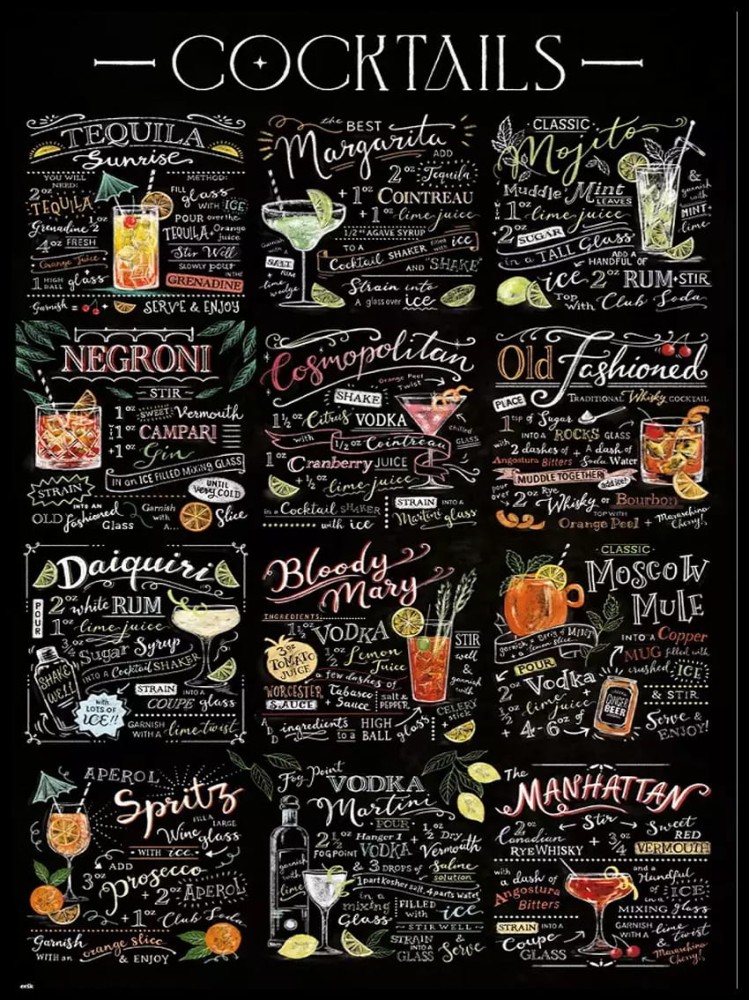 COCKTAILS
TEQUILA
Sunrise
YOU WILL NEED:
2 oz TEQUILA
Grenadine 2
1 oz
4 oz FRESH
Orange Juice
1 HIGH BALL glass
METHOD:
FILL glass
WITH ICE
POUR over the
TEQUILA & Orange juice
Stir Well
SLOWLY POUR
IN THE
GRENADINE
Garnish = + SERVE & ENJOY
the BEST
Margarita
ADD
2 oz Tequila
+ 1 oz COINTREAU
+ 1 oz lime juice
1/2 oz AGAVE SYRUP
TO A
Cocktail SHAKER
with ice
AND "SHAKE"
Garnish with
SALT
RIM
lime wedge
Strain into
A glass over ice
CLASSIC
Mojito
Muddle Mint LEAVES
1 oz lime juice
2 oz SUGAR
in a TALL Glass
ADD A HANDFUL OF
ice 2 oz RUM + STIR
Top with Club Soda
garnish with
MINT
& lime
NEGRONI
STIR
1 oz SWEET Vermouth
1 oz CAMPARI
+ 1 oz Gin
IN an ICE FILLED MIXING GLASS
UNTIL
Very COLD
STRAIN
INTO AN
OLD fashioned
Glass
Garnish with a Slice
Cosmopolitan
Orange Peel twist
SHAKE
1 1/2 oz Citrus VODKA
with 1/2 oz Cointreau
1 oz Cranberry JUICE
+ 1/2 oz lime juice
in a Cocktail SHAKER
with ice
chilled
GLASS
STRAIN INTO A
Martini glass
Old Fashioned
TRADITIONAL Whisky COCKTAIL
PLACE
1 tsp of Sugar
INTO A ROCKS GLASS
with 2 dashes of + A dash of
Angostura Bitters Soda Water
MUDDLE TOGETHER
add ice!
pour over 2 oz Rye
Whisky or Bourbon
TOP WITH
Orange Peel + Maraschino Cherry!
Daiquiri
POUR
2 oz white RUM
1 oz lime juice
3/4 oz Sugar Syrup
INTO a Cocktail SHAKER
SHAKE WELL
with LOTS OF ICE!!
STRAIN INTO A
COUPE glass
GARNISH WITH A lime twist
Bloody
Mary
INGREDIENTS
1 1/2 oz VODKA
3 oz TOMATO JUICE
1/2 oz Lemon Juice
a few dashes of
WORCESTER SAUCE
Tabasco Sauce
salt & PEPPER
ADD ingredients
to a HIGH BALL glass
STIR
well
&
garnish
CELERY STICK
CLASSIC
MOSCOW
MULE
INTO A Copper
MUG filled with
crushed ICE
& STIR
garnish a Sprig of MINT
POUR
2 oz Vodka
1/2 oz lime juice
+ 4-6 oz of
GINGER BEER
Serve & ENJOY!
APEROL
Spritz
FILL A LARGE
Wine glass
WITH ice
ADD
3 oz Prosecco
+ 2 oz APEROL
+ 1 oz Club Soda
Garnish
WITH an orange slice
& ENJOY
Fog Point
VODKA
Martini
POUR
2 1/2 oz Hanger 1
FOGPOINT VODKA
+ 1/2 oz Dry Vermouth
& 3 DROPS of Saline solution
1 part kosher salt, 4 parts water
garnish with lime
in a mixing Glass
FILLED with ice
STIR WELL
STRAIN INTO GLASS
& Serve
The
MANHATTAN
Stir
2 oz Canadian
RYE WHISKY
+ 3/4 oz Sweet
RED
VERMOUTH
with a dash of
Angostura
Bitters
and a
Handful
of ICE
in a MIXING glass
STRAIN INTO A
Coupe
GLASS
GARNISH WITH A lime twist
& Maraschino Cherry!